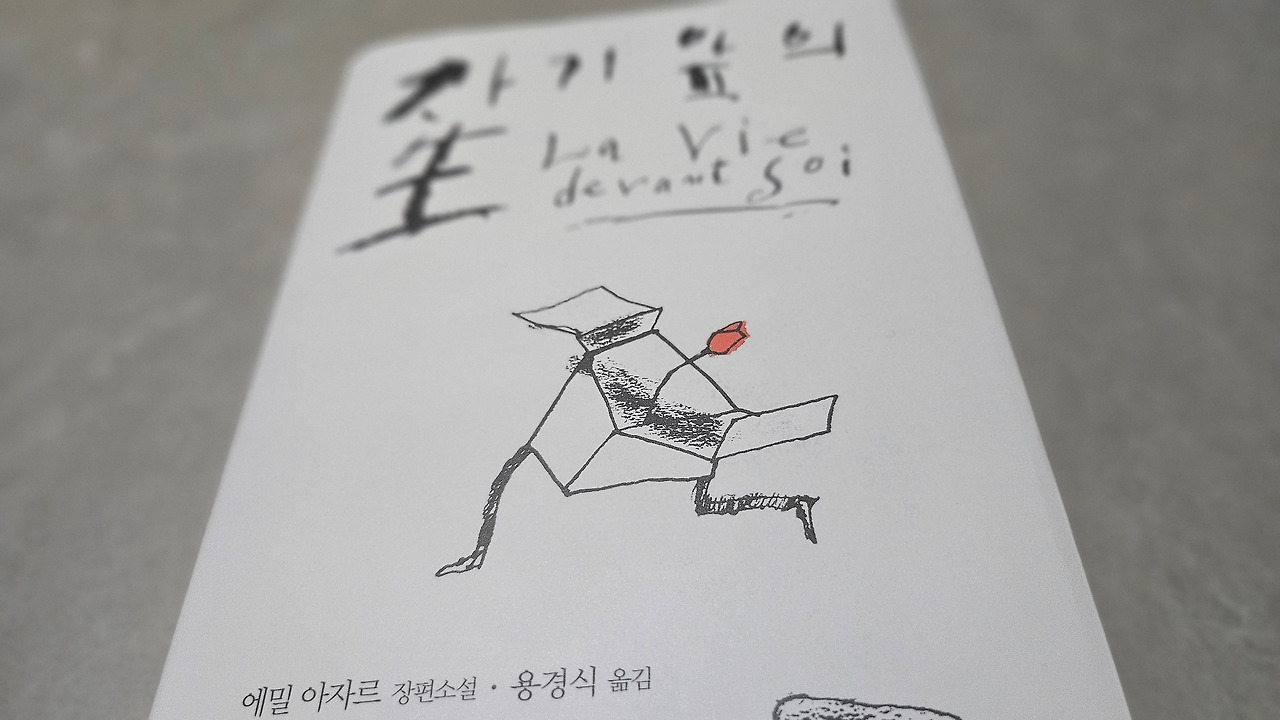 자기 앞의
生 La Vie
devant Soi
에밀 아자르 장편소설 · 용경식 옮김